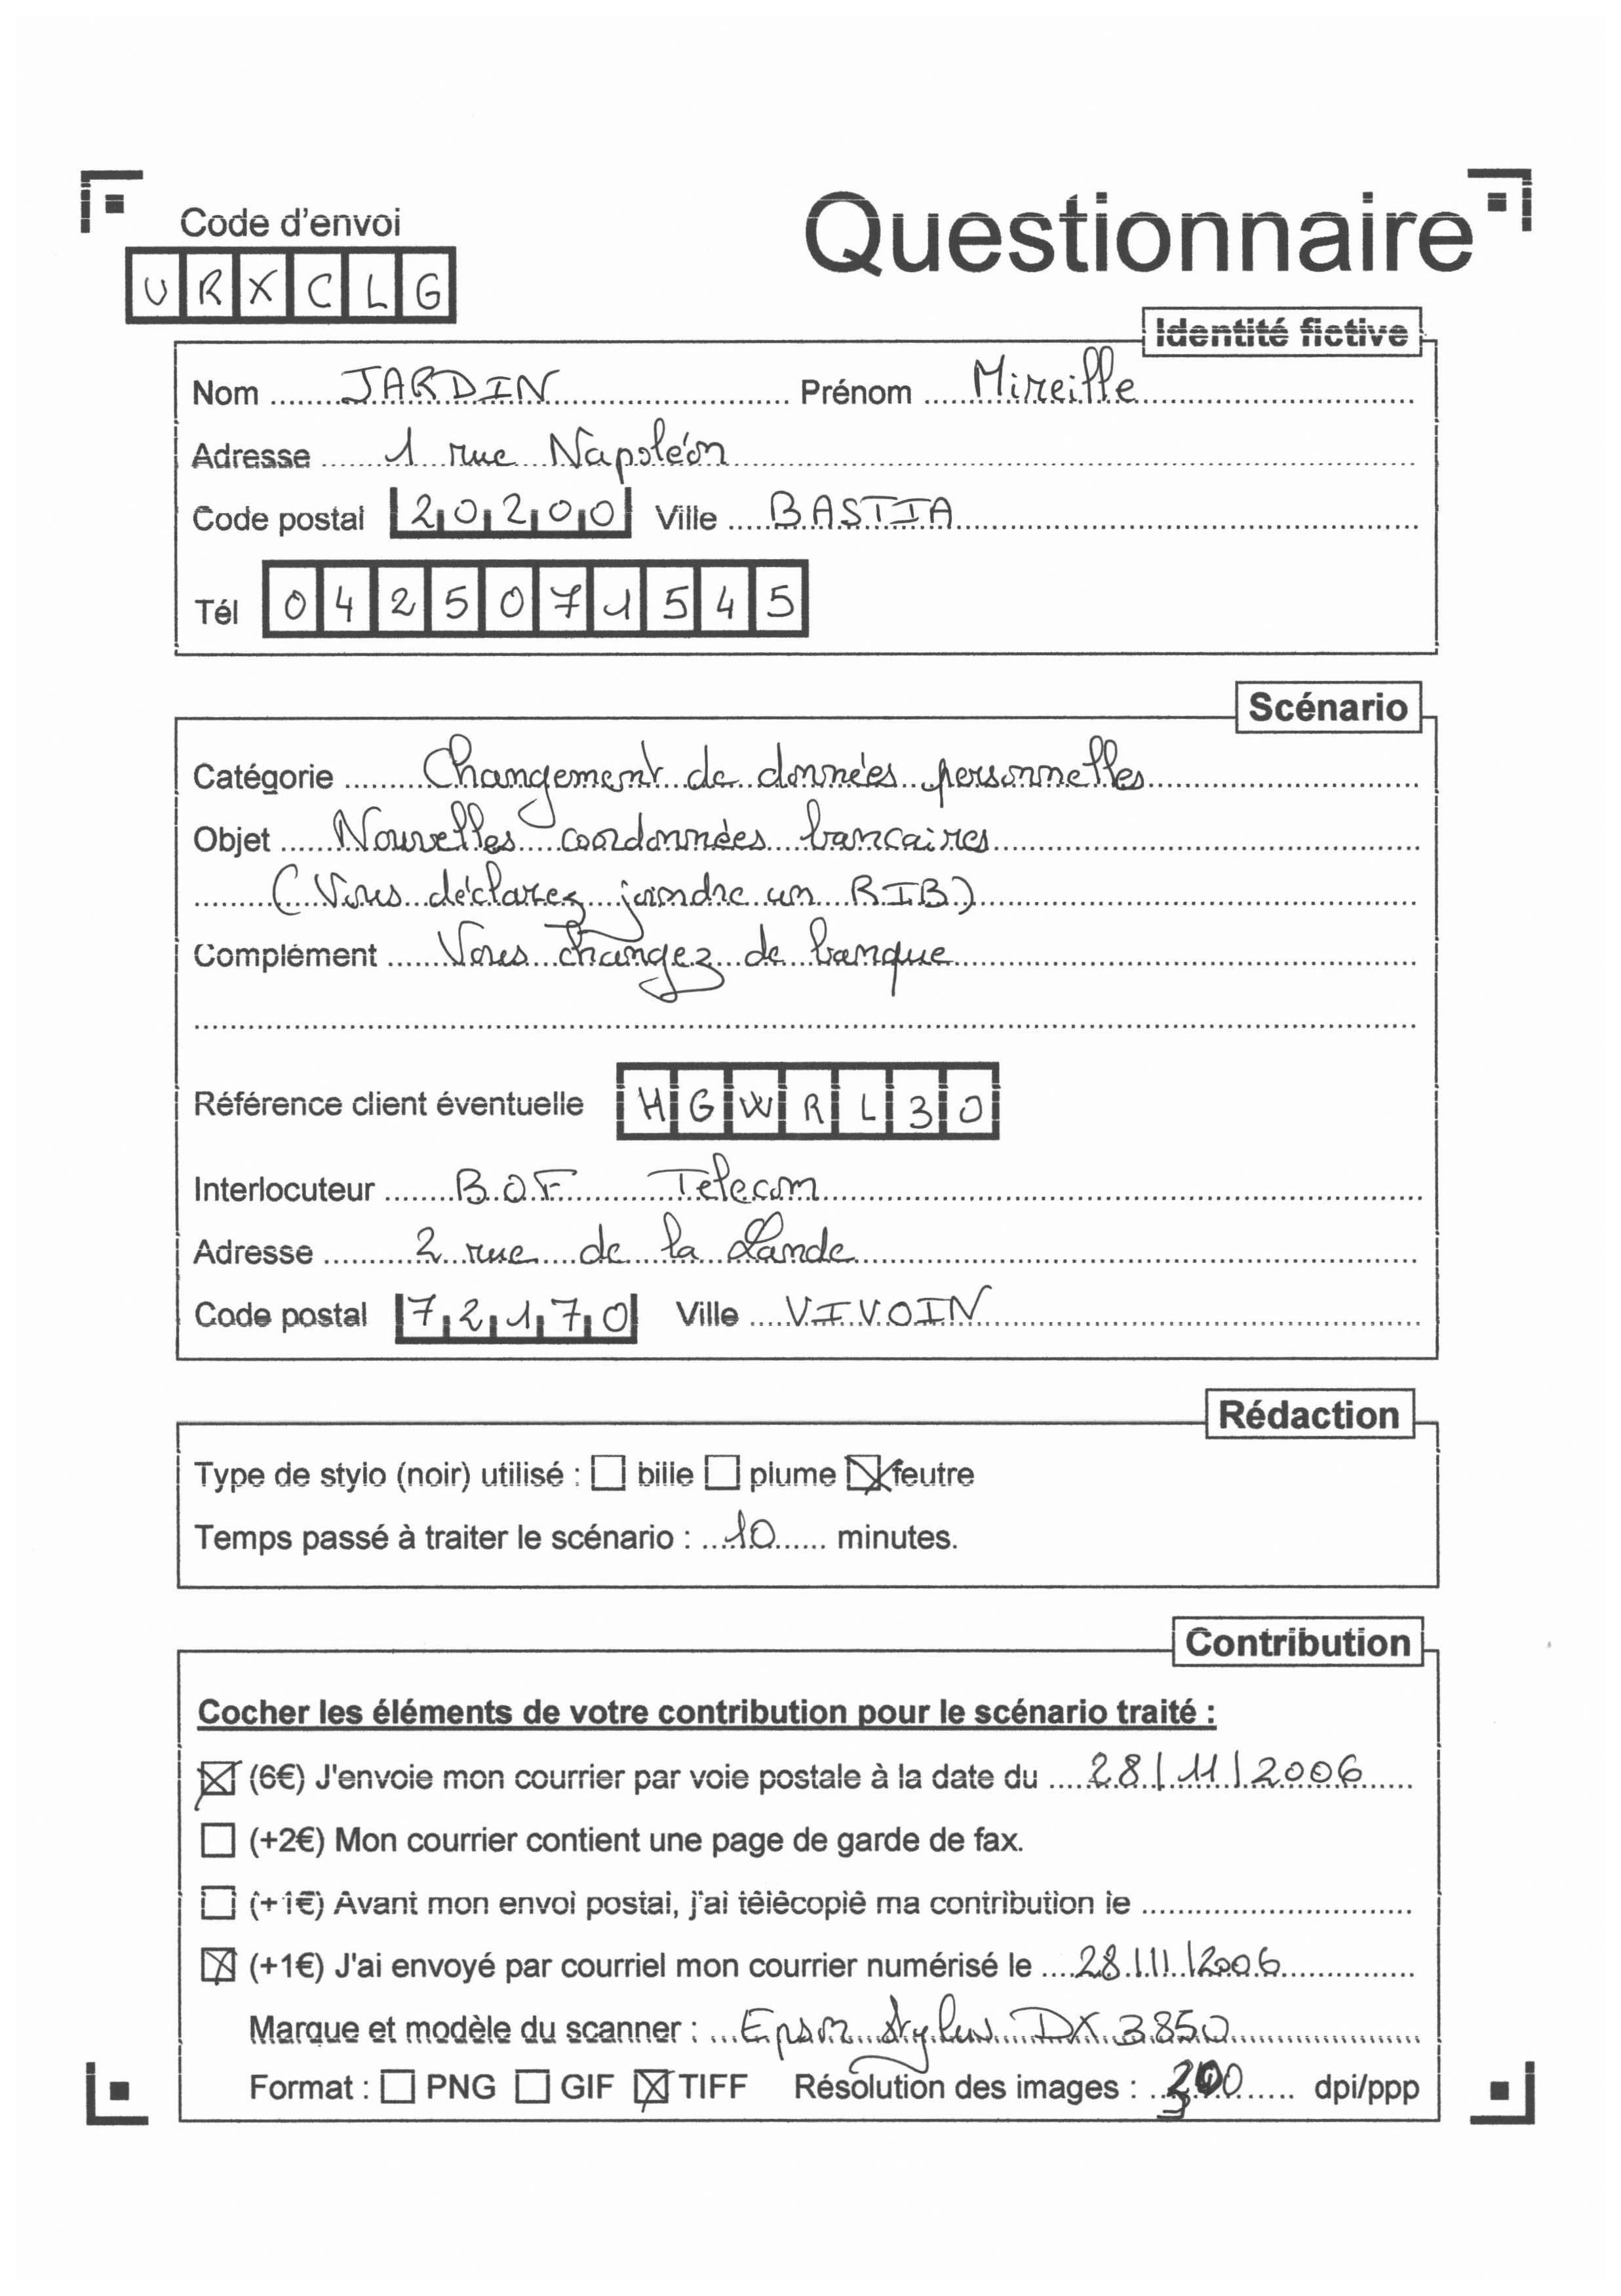 Code d'envoi
Questionnaire
URXCLG
Identité fictive
Nom JARDIN Prénom Mireille
Adresse 1 rue Napoléon
Code postal 20200 Ville BASTIA
Tél 0425071545
Scénario
Catégorie Changement de données personnelles
Objet Nouvelles coordonnées bancaires
(Vous déclarez joindre un RIB)
Complément Vous changez de banque
Référence client éventuelle HGWRL30
Interlocuteur BOF Telecom
Adresse 2 rue de la Lande
Code postal 72170 Ville VIVOIN
Rédaction
Type de stylo (noir) utilisé : bille plume feutre
Temps passé à traiter le scénario : 10 minutes.
Contribution
Cocher les éléments de votre contribution pour le scénario traité :
(6€) J'envoie mon courrier par voie postale à la date du 28/11/2006
(+2€) Mon courrier contient une page de garde de fax.
(+1€) Avant mon envoi postal, j'ai télécopié ma contribution le
(+1€) J'ai envoyé par courriel mon courrier numérisé le 28/11/2006
Marque et modèle du scanner : Epson Stylus DX 3850
Format : PNG GIF TIFF Résolution des images : dpi/ppp